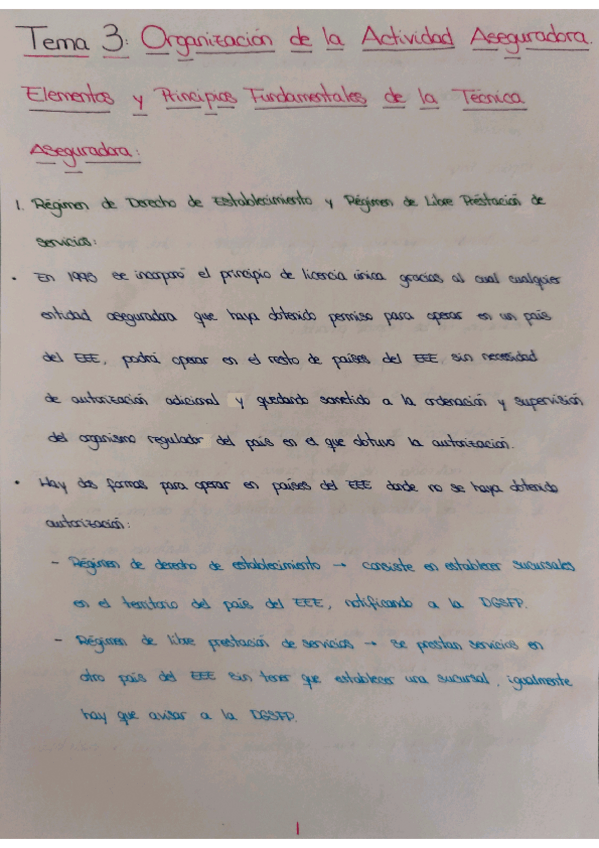 Tema 3: Organización de la Actividad Aseguradora.
Elementos y Principios Fundamentales de la Técnica
Aseguradora:
1. Régimen de Derecho de Establecimiento y Régimen de Libre Prestación de
servicios:
• En 1995 se incorporó el principio de licencia única gracias al cual cualquier
entidad aseguradora que haya obtenido permiso para operar en un país
del EEE, podrá operar en el resto de países del EEE sin necesidad
de autorización adicional y quedando sometido a la ordenación y supervisión
del organismo regulador del país en el que obtuvo la autorización.
• Hay dos formas para operar en países del EEE donde no se haya obtenido
autorización:
- Régimen de derecho de establecimiento → consiste en establecer sucursales
en el territorio del país del EEE, notificando a la DGSFP.
- Régimen de libre prestación de servicios → se prestan servicios en
otro país del EEE sin tener que establecer una sucursal, igualmente
hay que avisar a la DGSFP.
1